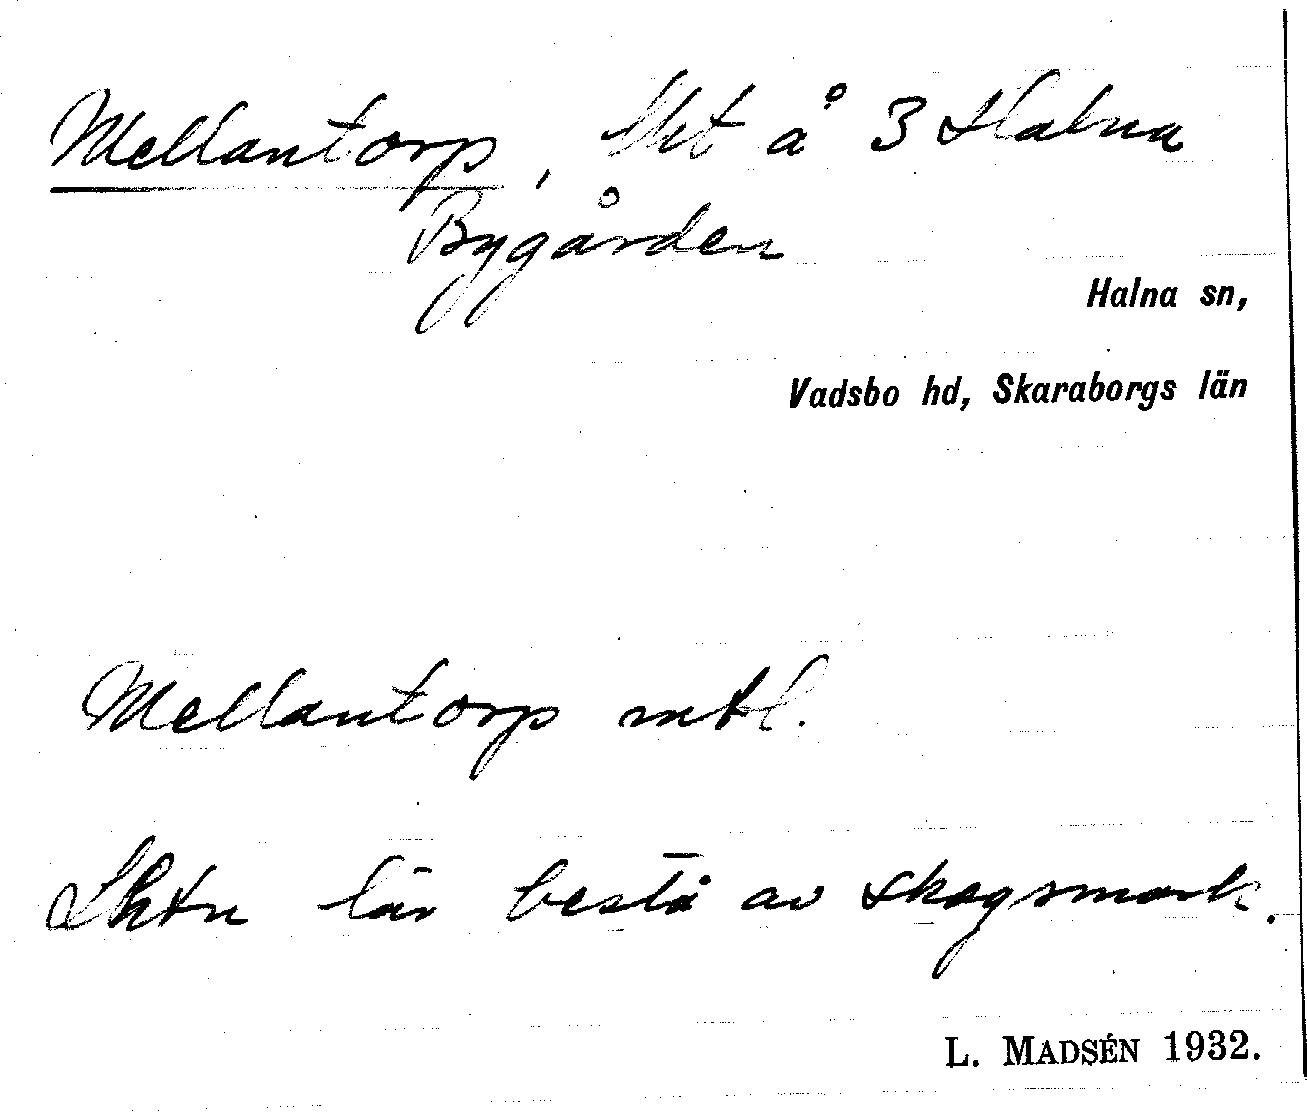 Mellantorp, Skt å 3 Halna
Bygården
Halna sn,
Vadsbo hd, Skaraborgs län
Mellantorp mtl.
Sktn lär bestå av skogsmark.
L. MADSÉN 1932.